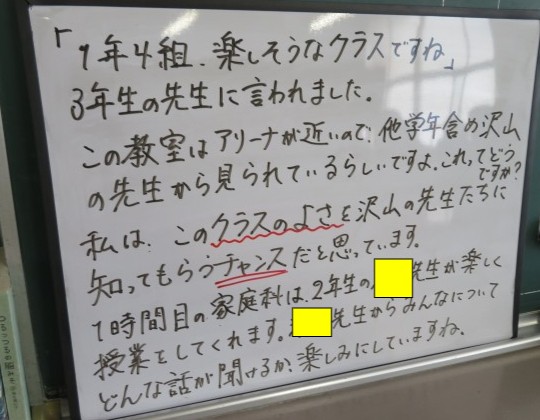 「1年4組、楽しそうなクラスですね」
3年生の先生に言われました。
この教室はアリーナが近いので、他学年含め沢山
の先生から見られているらしいですよ。これってどう
ですか?
私は、このクラスのよさを沢山の先生たちに
知ってもらうチャンスだと思っています。
1時間目の家庭科は、2年生の先生が楽しく
授業をしてくれます。先生からみんなについて
どんな話が聞けるか、楽しみにしていますね。